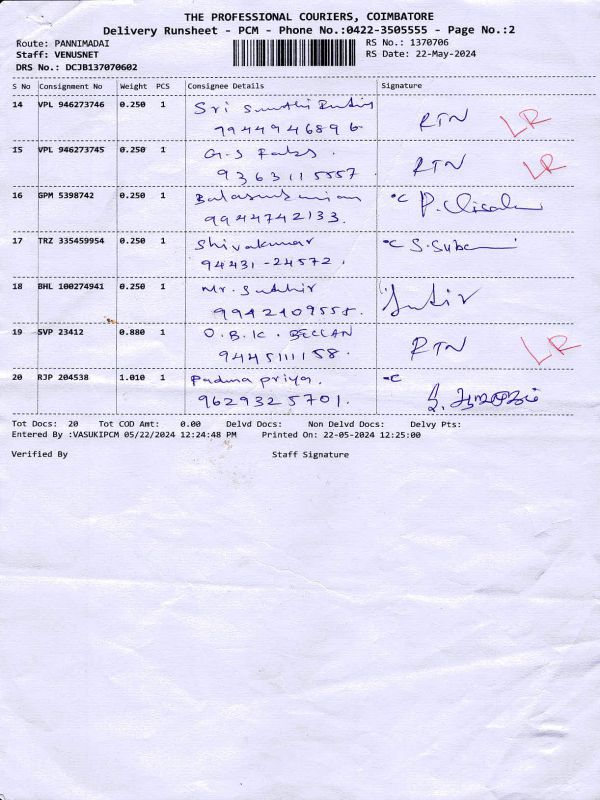 THE PROFESSIONAL COURIERS, COIMBATORE
Delivery Runsheet - PCM - Phone No.:0422-3505555 - Page No.:2
Route: PANNIMADAI
RS No.: 1370706
Staff: VENUSNET
RS Date: 22-May-2024
DRS No.: DCJB137070602
S No Consignment No Weight PCS Consignee Details Signature
14 VPL 946273746 0.250 1 Sri
9944946896 RTN LR
15 VPL 946273745 0.250 1 G.S Fabs.
9363115557 RTN LR
16 GPM 5398742 0.250 1 Balasubramian °C P.
9944742133.
17 TRZ 335459954 0.250 1 Shivakumar °C S.
94431-24572.
18 BHL 100274941 0.250 1 Mr. Sudhir
9942109555.
19 SVP 23412 0.880 1 O.B.K.
9445111158. RTN LR
20 RJP 204538 1.010 1 Padma priya. °C
9629325701.
Tot Docs: 20 Tot COD Amt: 0.00 Delvd Docs: Non Delvd Docs: Delvy Pts:
Entered By :VASUKIPCM 05/22/2024 12:24:48 PM Printed On: 22-05-2024 12:25:00
Verified By Staff Signature